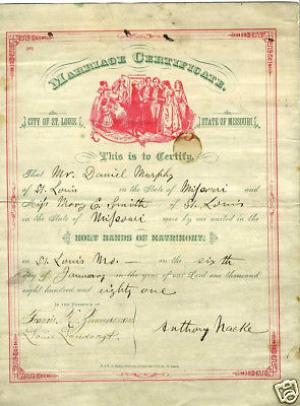 MARRIAGE CERTIFICATE.
CITY OF ST. LOUIS, STATE OF MISSOURI
This is to Certify,
That Mr. Daniel Murphy
of St. Louis in the State of Missouri and
Miss Mary E. Smith of St. Louis
in the State of Missouri were by me united in the
HOLY BANDS OF MATRIMONY;
at St. Louis Mo. on the sixth
day of January in the year of our Lord one thousand
eight hundred and eighty one
In the Presence of
Anthony Nacke